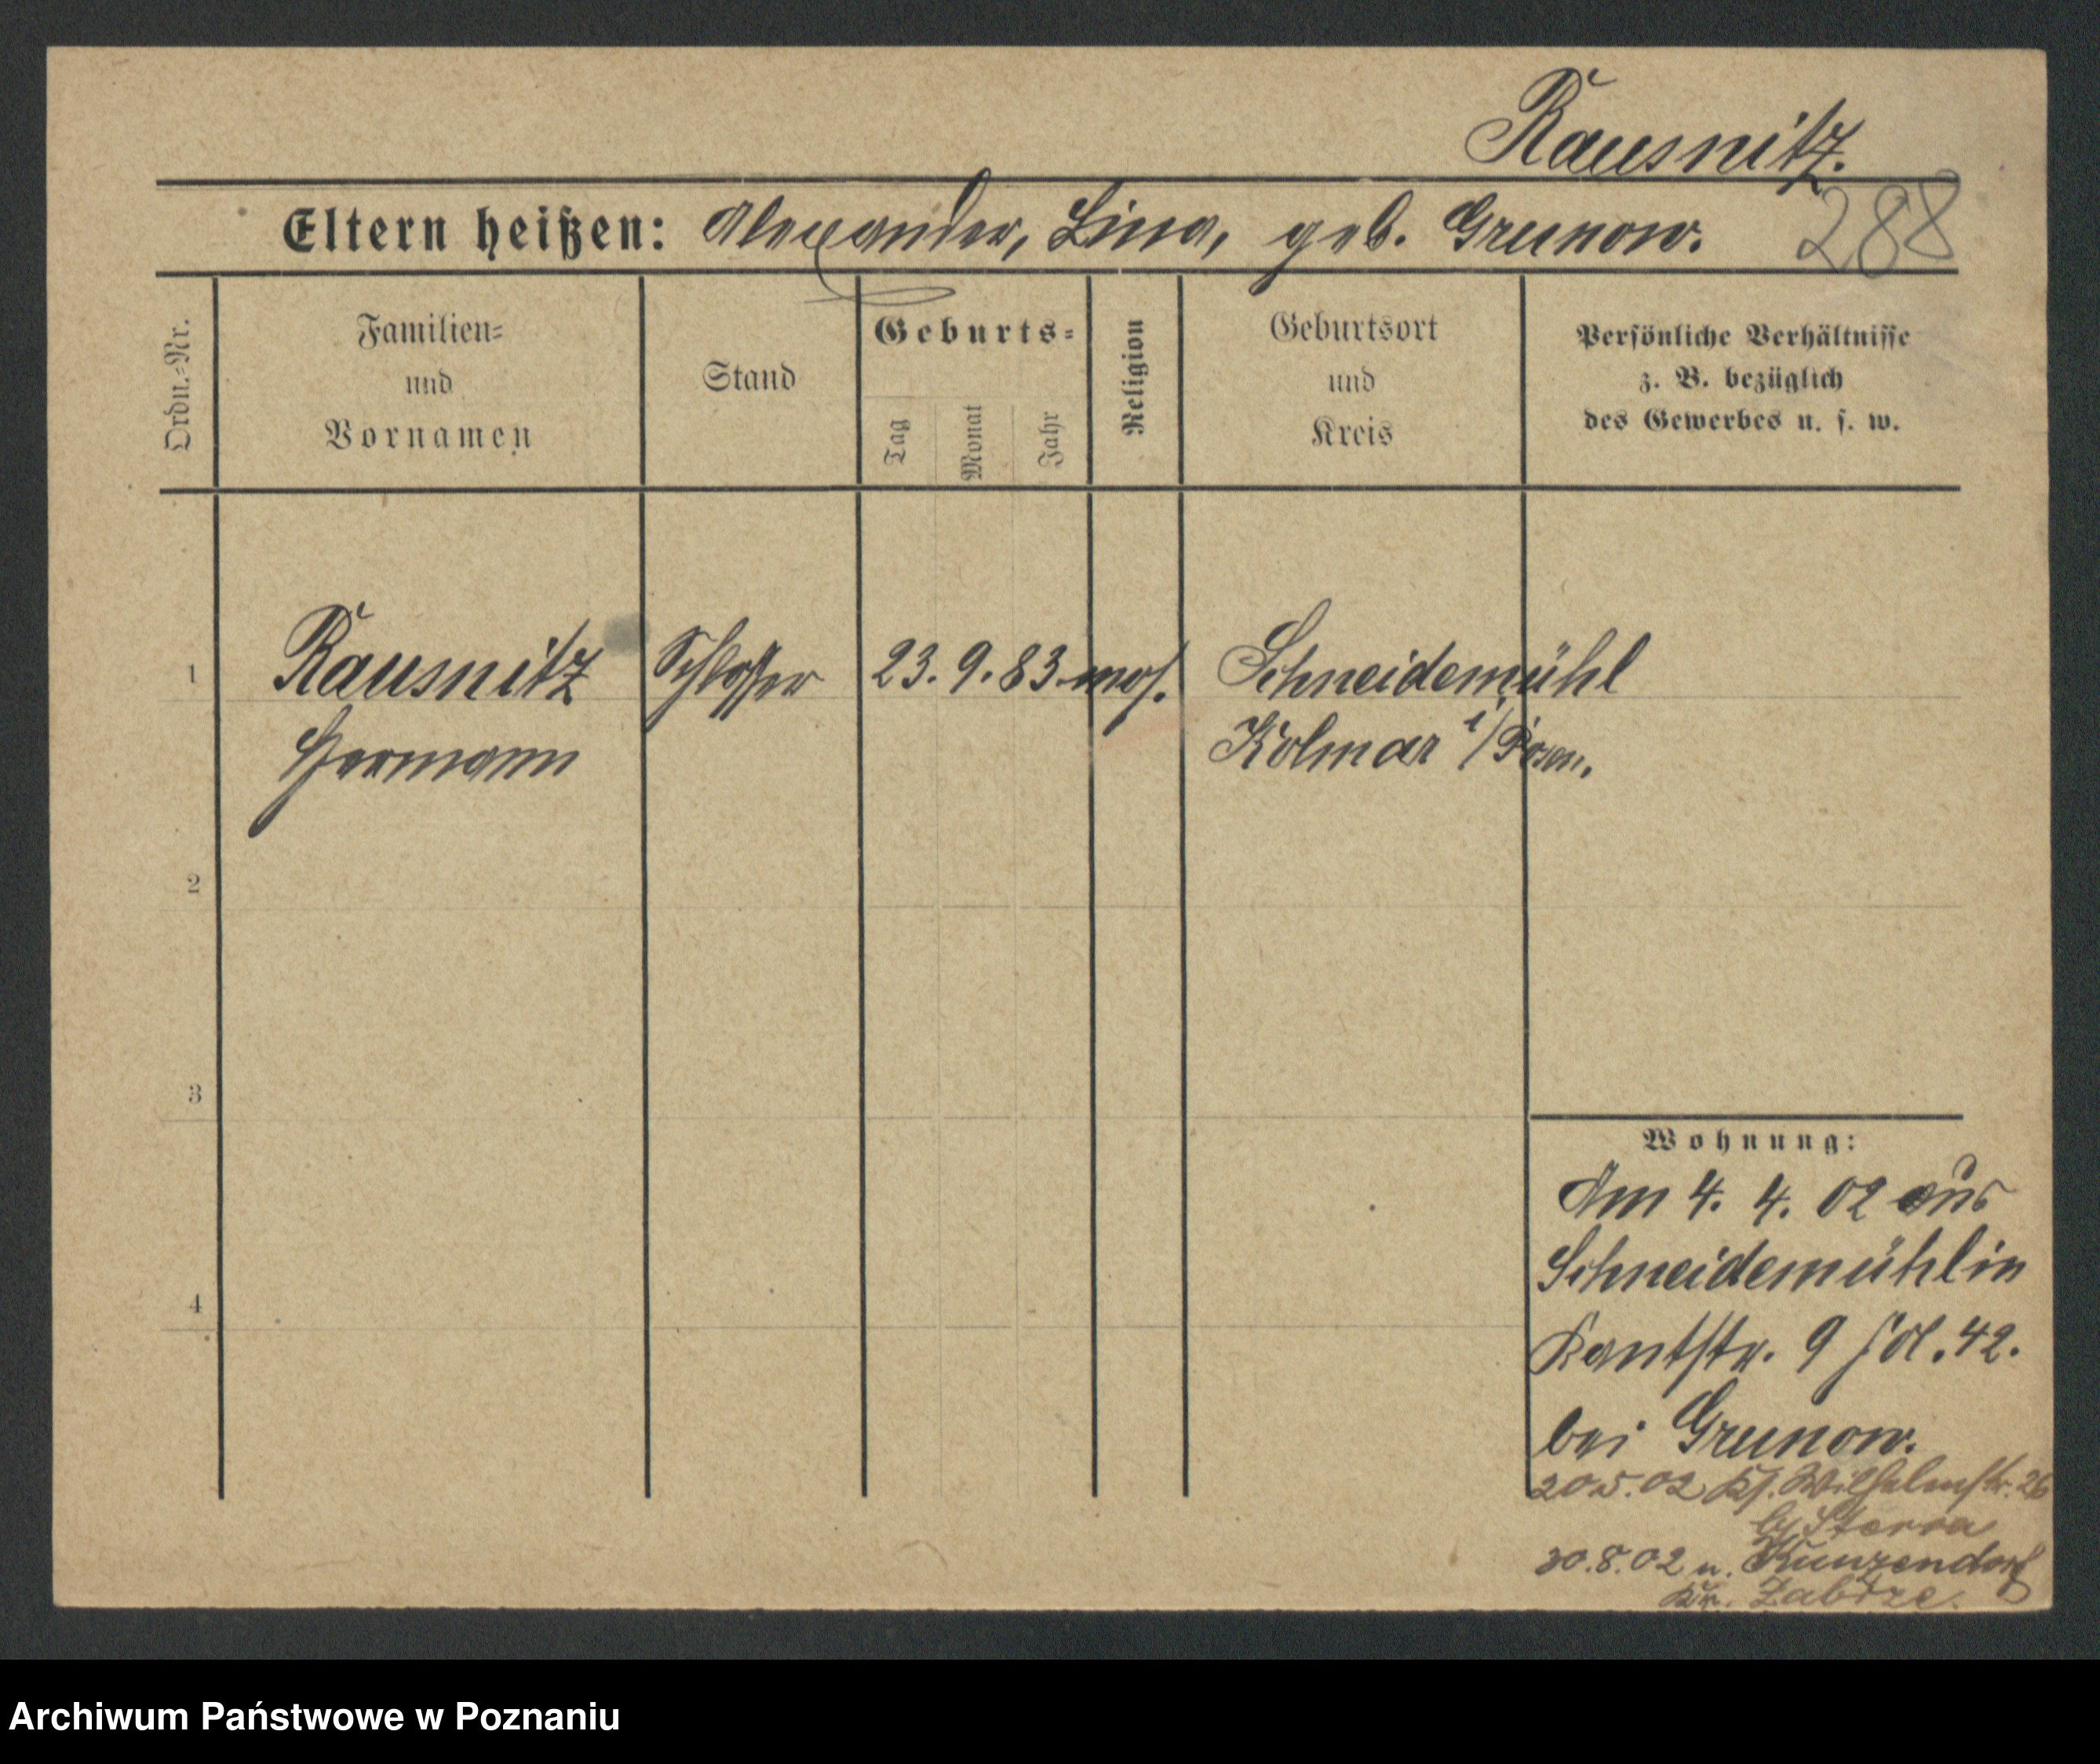 Rausnitz.
288
Eltern heißen: Alexander, Lina, geb. Grunow.
Ordn.-Nr.
Familien-
und
Vornamen
Stand
Geburts-
Tag
Monat
Jahr
Religion
Geburtsort
und
Kreis
Persönliche Verhältnisse
z. B. bezüglich
des Gewerbes u. s. w.
1 Rausnitz Schlosser 23. 9. 83. mos. Schneidemühl
Hermann Kolmar i/Posen.
2
3
4
Wohnung:
Am 4. 4. 02 aus
Schneidemühl in
Kantstr. 9 fol. 42.
bei Grunow.
20.5.02 Wilhelmstr. 26
30.8.02 n. Kunzendorf
Kr. Zabrze.
Archiwum Państwowe w Poznaniu